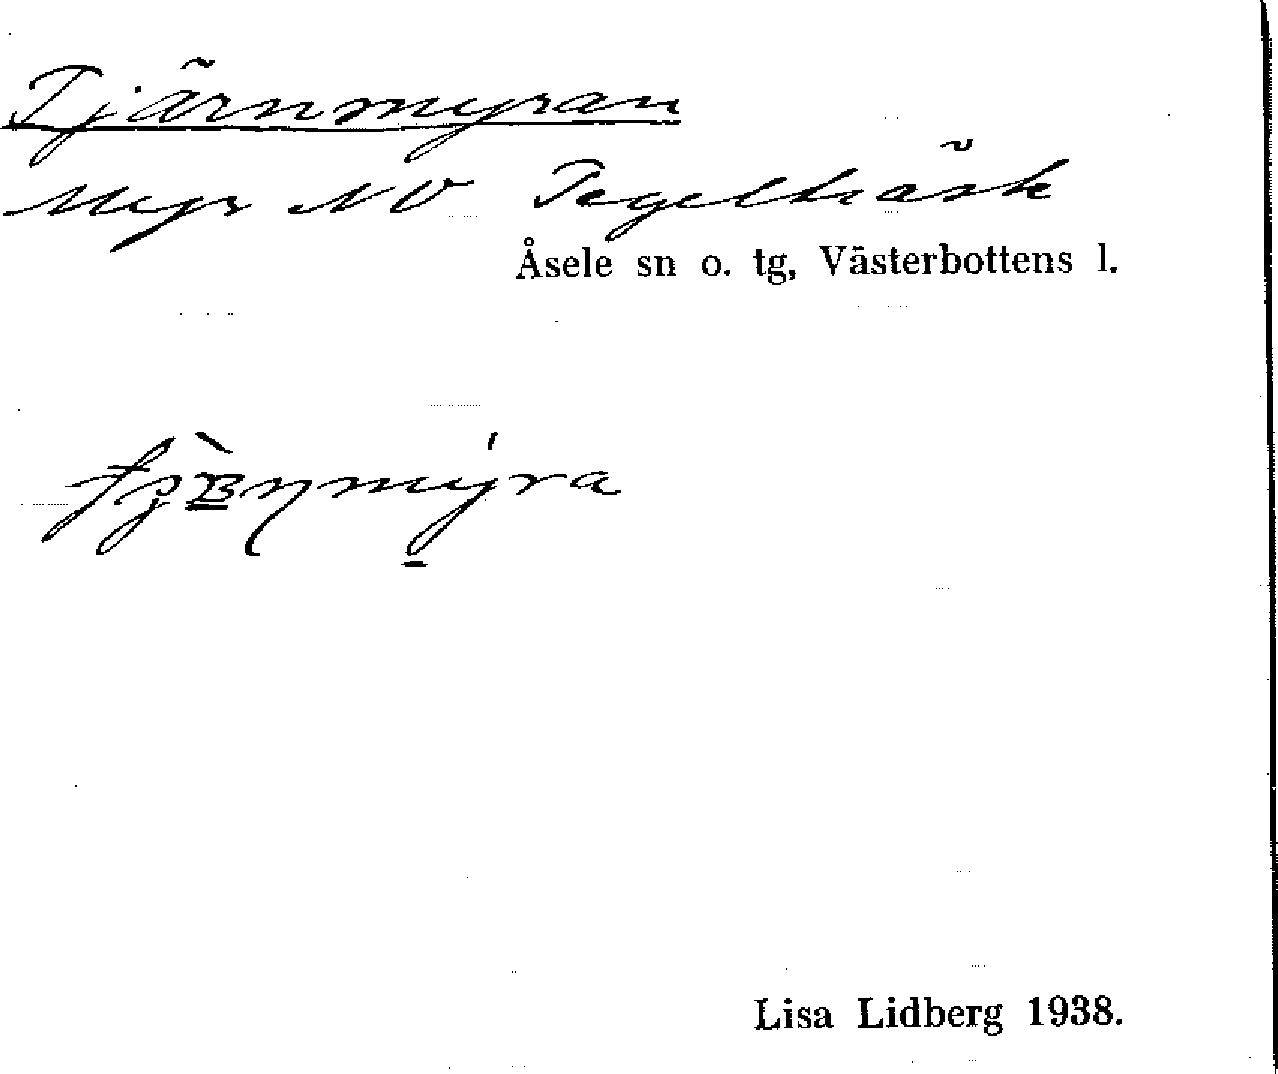 Tjärnmyran
Myr NV Tegelträsk
Åsele sn o. tg, Västerbottens l.
Lisa Lidberg 1938.